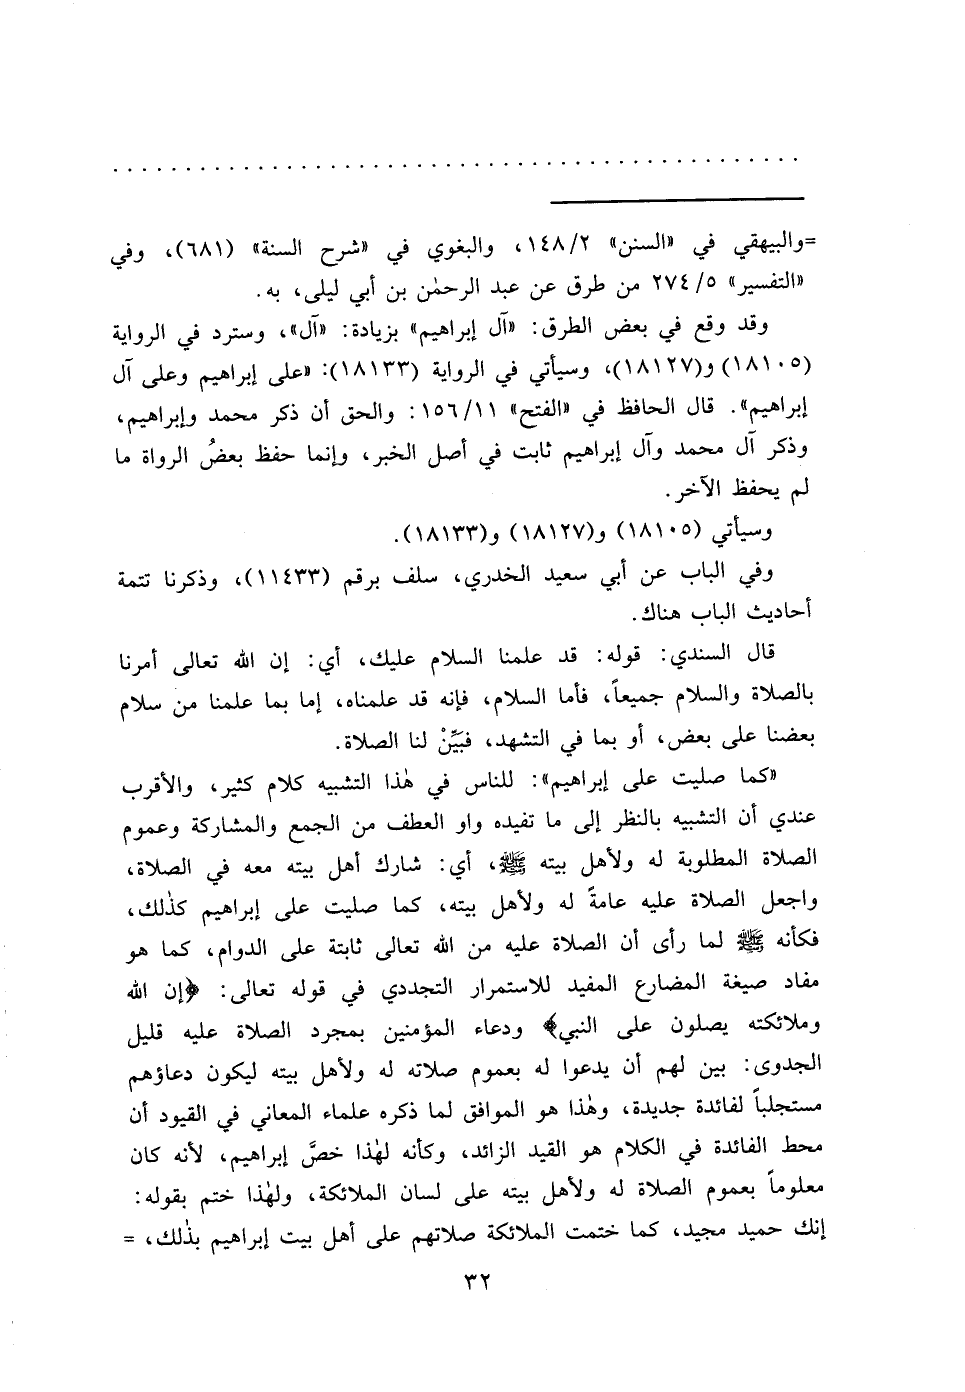 =والبيهقي في «السنن» ١٤٨/٢، والبغوي في «شرح السنة» (٦٨١)، وفي
«التفسير» ٢٧٤/٥ من طرق عن عبد الرحمٰن بن أبي ليلى، به.
وقد وقع في بعض الطرق: «آل إبراهيم» بزيادة: «آل»، وسترد في الرواية
(١٨١٠٥) و(١٨١٢٧)، وسيأتي في الرواية (١٨١٣٣): «على إبراهيم وعلى آل
إبراهيم». قال الحافظ في «الفتح» ١٥٦/١١: والحق أن ذكر محمد وإبراهيم،
وذكر آل محمد وآل إبراهيم ثابت في أصل الخبر، وإنما حفظ بعضُ الرواة ما
لم يحفظ الآخر.
وسيأتي (١٨١٠٥) و(١٨١٢٧) و(١٨١٣٣).
وفي الباب عن أبي سعيد الخدري، سلف برقم (١١٤٣٣)، وذكرنا تتمة
أحاديث الباب هناك.
قال السندي: قوله: قد علمنا السلام عليك، أي: إن الله تعالى أمرنا
بالصلاة والسلام جميعاً، فأما السلام، فإنه قد علمناه، إما بما علمنا من سلام
بعضنا على بعض، أو بما في التشهد، فبَيِّنْ لنا الصلاة.
«كما صليت على إبراهيم»: للناس في هٰذا التشبيه كلام كثير، والأقرب
عندي أن التشبيه بالنظر إلى ما تفيده واو العطف من الجمع والمشاركة وعموم
الصلاة المطلوبة له ولأهل بيته ﷺ، أي: شارك أهل بيته معه في الصلاة،
واجعل الصلاة عليه عامةً له ولأهل بيته، كما صليت على إبراهيم كذٰلك،
فكأنه ﷺ لما رأى أن الصلاة عليه من الله تعالى ثابتة على الدوام، كما هو
مفاد صيغة المضارع المفيد للاستمرار التجددي في قوله تعالى: ﴿إن الله
وملائكته يصلون على النبي﴾ ودعاء المؤمنين بمجرد الصلاة عليه قليل
الجدوى: بين لهم أن يدعوا له بعموم صلاته له ولأهل بيته ليكون دعاؤهم
مستجلباً لفائدة جديدة، وهٰذا هو الموافق لما ذكره علماء المعاني في القيود أن
محط الفائدة في الكلام هو القيد الزائد، وكأنه لهٰذا خصَّ إبراهيم، لأنه كان
معلوماً بعموم الصلاة له ولأهل بيته على لسان الملائكة، ولهٰذا ختم بقوله:
إنك حميد مجيد، كما ختمت الملائكة صلاتهم على أهل بيت إبراهيم بذٰلك، =
٣٢